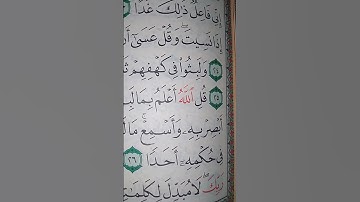 إِنِّى فَاعِلٌ ذَٰلِكَ غَدًا ٢٣
إِذَا نَسِيتَ وَقُلْ عَسَىٰٓ أَن
٢٤ وَلَبِثُوا۟ فِى كَهْفِهِمْ
٢٥ قُلِ ٱللَّهُ أَعْلَمُ بِمَا
أَبْصِرْ بِهِۦ وَأَسْمِعْ مَا
فِى حُكْمِهِۦٓ أَحَدًا ٢٦
رَبِّكَ لَا مُبَدِّلَ لِكَلِمَٰتِهِۦ